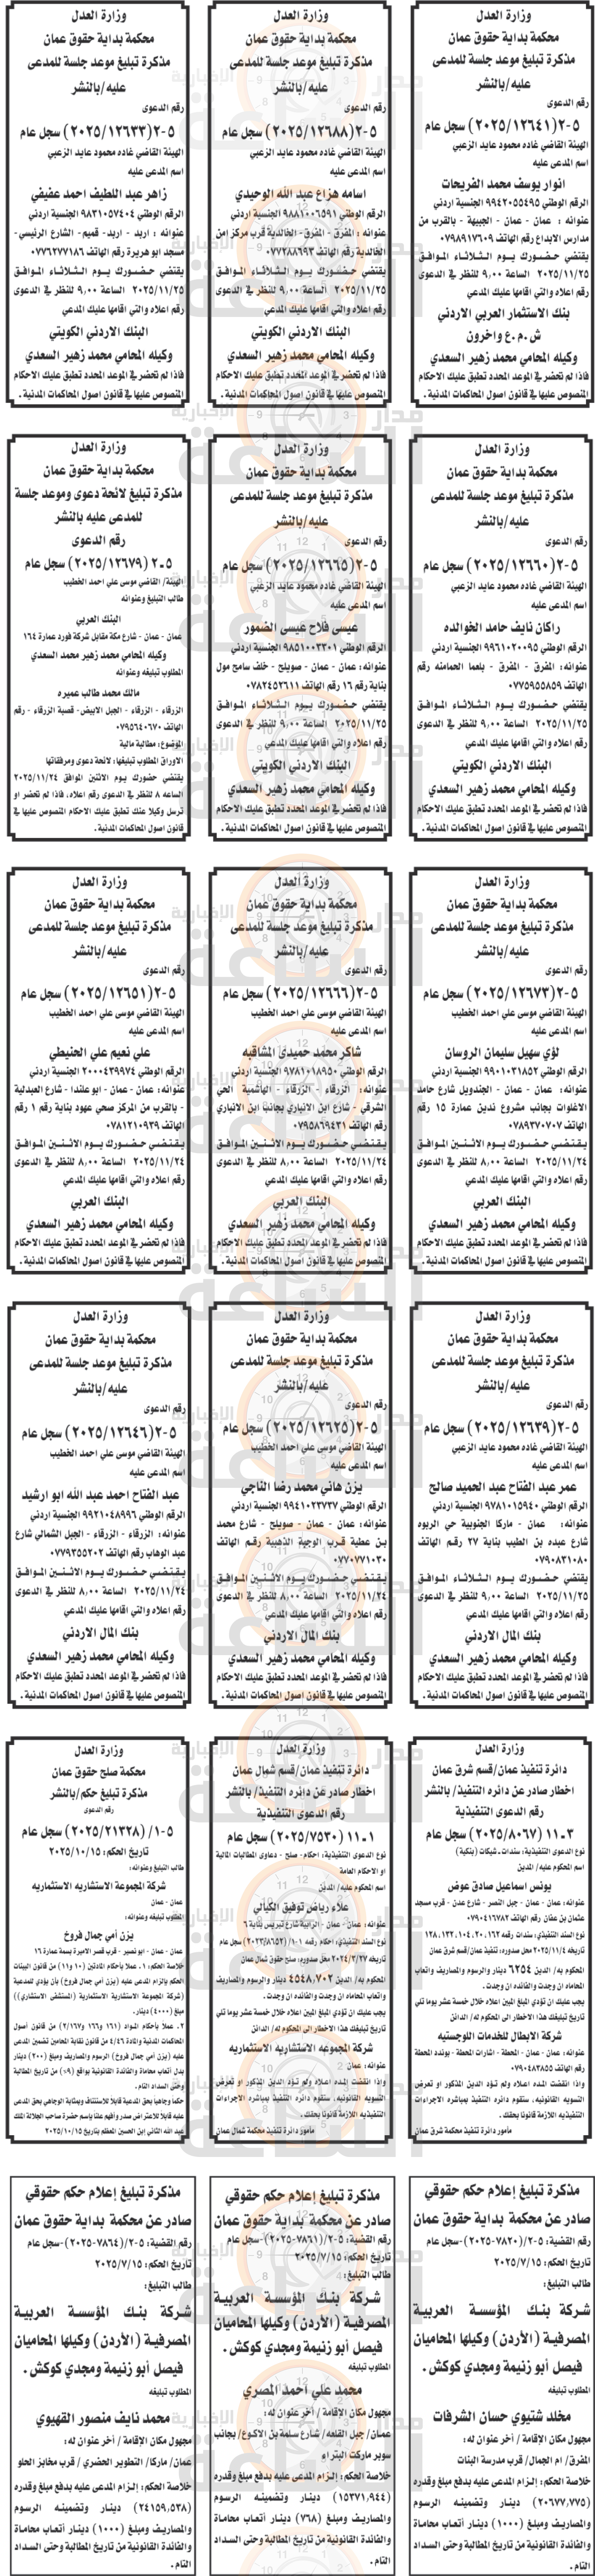 وزارة العدل
محكمة بداية حقوق عمان
مذكرة تبليغ موعد جلسة للمدعى
عليه /بالنشر
رقم الدعوى
٥-٢ (٢٠٢٥/١٢٦٤١) سجل عام
الهيئة القاضي غاده محمود عايد الزعبي
اسم المدعى عليه
انوار يوسف محمد الفريحات
الرقم الوطني ٩٩٤٢٠٥٥٤٩٥ الجنسية اردني
عنوانه : عمان - عمان - الجبيهة - بالقرب من
مدارس الابداع رقم الهاتف ٠٧٩٨٩١٧٦٠٩
يقتضي حضورك يوم الثلاثاء الموافق
٢٠٢٥/١١/٢٥ الساعة ٩,٠٠ للنظر في الدعوى
رقم اعلاه والتي اقامها عليك المدعي
بنك الاستثمار العربي الاردني
ش.م.ع واخرون
وكيله المحامي محمد زهير السعدي
فاذا لم تحضر في الموعد المحدد تطبق عليك الاحكام
المنصوص عليها في قانون اصول المحاكمات المدنية .
وزارة العدل
محكمة بداية حقوق عمان
مذكرة تبليغ موعد جلسة للمدعى
عليه /بالنشر
رقم الدعوى
٥-٢ (٢٠٢٥/١٢٦٨٨) سجل عام
الهيئة القاضي غاده محمود عايد الزعبي
اسم المدعى عليه
اسامه هزاع عبد الله الوحيدي
الرقم الوطني ٩٨٨١٠٠٦٥٩١ الجنسية اردني
عنوانه : المفرق - المفرق - الخالدية قرب مركز امن
الخالدية رقم الهاتف ٠٧٧٢٨٨٦٩٣
يقتضي حضورك يوم الثلاثاء الموافق
٢٠٢٥/١١/٢٥ الساعة ٩,٠٠ للنظر في الدعوى
رقم اعلاه والتي اقامها عليك المدعي
البنك الاردني الكويتي
وكيله المحامي محمد زهير السعدي
فاذا لم تحضر في الموعد المحدد تطبق عليك الاحكام
المنصوص عليها في قانون اصول المحاكمات المدنية .
وزارة العدل
محكمة بداية حقوق عمان
مذكرة تبليغ موعد جلسة للمدعى
عليه /بالنشر
رقم الدعوى
٥-٢ (٢٠٢٥/١٢٦٣٣) سجل عام
الهيئة القاضي غاده محمود عايد الزعبي
اسم المدعى عليه
زاهر عبد اللطيف احمد عفيفي
الرقم الوطني ٩٨٣١٠٥٧٤٠٤ الجنسية اردني
عنوانه : اربد - اربد - قميم - الشارع الرئيسي -
مسجد ابو هريرة رقم الهاتف ٠٧٧٦٢٧٧١٨٦
يقتضي حضورك يوم الثلاثاء الموافق
٢٠٢٥/١١/٢٥ الساعة ٩,٠٠ للنظر في الدعوى
رقم اعلاه والتي اقامها عليك المدعي
البنك الاردني الكويتي
وكيله المحامي محمد زهير السعدي
فاذا لم تحضر في الموعد المحدد تطبق عليك الاحكام
المنصوص عليها في قانون اصول المحاكمات المدنية .
وزارة العدل
محكمة بداية حقوق عمان
مذكرة تبليغ موعد جلسة للمدعى
عليه /بالنشر
رقم الدعوى
٥-٢ (٢٠٢٥/١٢٦٦٠) سجل عام
الهيئة القاضي غاده محمود عايد الزعبي
اسم المدعى عليه
راكان نايف حامد الخوالده
الرقم الوطني ٩٩٦١٠٢٠٠٩٥ الجنسية اردني
عنوانه: المفرق - المفرق - بلعما الحمامنه رقم
الهاتف ٠٧٧٥٩٥٥٨٥٩
يقتضي حضورك يوم الثلاثاء الموافق
٢٠٢٥/١١/٢٥ الساعة ٩,٠٠ للنظر في الدعوى
رقم اعلاه والتي اقامها عليك المدعي
البنك الاردني الكويتي
وكيله المحامي محمد زهير السعدي
فاذا لم تحضر في الموعد المحدد تطبق عليك الاحكام
المنصوص عليها في قانون اصول المحاكمات المدنية .
وزارة العدل
محكمة بداية حقوق عمان
مذكرة تبليغ موعد جلسة للمدعى
عليه /بالنشر
رقم الدعوى
٥-٢ (٢٠٢٥/١٢٦٦٥) سجل عام
الهيئة القاضي غاده محمود عايد الزعبي
اسم المدعى عليه
عيسى فلاح عيسى الضمور
الرقم الوطني ٩٨٥١٠٠٣٣٠١ الجنسية اردني
عنوانه: عمان - عمان - صويلح - خلف سامح مول
بناية رقم ١٦ رقم الهاتف ٠٧٨٢٤٥٣٦١١
يقتضي حضورك يوم الثلاثاء الموافق
٢٠٢٥/١١/٢٥ الساعة ٩,٠٠ للنظر في الدعوى
رقم اعلاه والتي اقامها عليك المدعي
البنك الاردني الكويتي
وكيله المحامي محمد زهير السعدي
فاذا لم تحضر في الموعد المحدد تطبق عليك الاحكام
المنصوص عليها في قانون اصول المحاكمات المدنية .
وزارة العدل
محكمة بداية حقوق عمان
مذكرة تبليغ لائحة دعوى وموعد جلسة
للمدعى عليه بالنشر
رقم الدعوى
٥-٢ (٢٠٢٥/١٢٦٧٩) سجل عام
الهيئة/ القاضي موسى علي احمد الخطيب
طالب التبليغ وعنوانه
البنك العربي
عمان - عمان - شارع مكة مقابل شركة فورد عمارة ١٦٤
وكيله المحامي محمد زهير محمد السعدي
المطلوب تبليغه وعنوانه
مالك محمد طالب عميره
الزرقاء - الزرقاء - الجبل الابيض- قصبة الزرقاء - رقم
الهاتف ٠٧٩٥٦٤٠٦٧٠
الموضوع: مطالبة مالية
الاوراق المطلوب تبليغها: لائحة دعوى ومرفقاتها
يقتضي حضورك يوم الاثنين الموافق ٢٠٢٥/١١/٢٤
الساعه ٨ للنظر في الدعوى رقم اعلاه، فاذا لم تحضر او
ترسل وكيلا عنك تطبق عليك الاحكام المنصوص عليها في
قانون اصول المحاكمات المدنية .
وزارة العدل
محكمة بداية حقوق عمان
مذكرة تبليغ موعد جلسة للمدعى
عليه /بالنشر
رقم الدعوى
٥-٢ (٢٠٢٥/١٢٦٧٣) سجل عام
الهيئة القاضي موسى علي احمد الخطيب
اسم المدعى عليه
لؤي سهيل سليمان الروسان
الرقم الوطني ٩٩٠١٠٣١٨٥٢ الجنسية اردني
عنوانه: عمان - عمان - الجندويل شارع حامد
الاغلوات بجانب مشروع ندين عمارة ١٥ رقم
الهاتف ٠٧٨٩٣٧٠٧٠٧
يقتضي حضورك يوم الاثنين الموافق
٢٠٢٥/١١/٢٤ الساعة ٨,٠٠ للنظر في الدعوى
رقم اعلاه والتي اقامها عليك المدعي
البنك العربي
وكيله المحامي محمد زهير السعدي
فاذا لم تحضر في الموعد المحدد تطبق عليك الاحكام
المنصوص عليها في قانون اصول المحاكمات المدنية .
وزارة العدل
محكمة بداية حقوق عمان
مذكرة تبليغ موعد جلسة للمدعى
عليه /بالنشر
رقم الدعوى
٥-٢ (٢٠٢٥/١٢٦٦٦) سجل عام
الهيئة القاضي موسى علي احمد الخطيب
اسم المدعى عليه
شاكر محمد حميدي المشاقبه
الرقم الوطني ٩٧٨١٠١٨٩٥٠ الجنسية اردني
عنوانه: الزرقاء - الزرقاء - الهاشمية الحي
الشرقي - شارع ابن الانباري بجانب ابن الانباري
رقم الهاتف ٠٧٩٥٨٦٩٤٣١
يقتضي حضورك يوم الاثنين الموافق
٢٠٢٥/١١/٢٤ الساعة ٨,٠٠ للنظر في الدعوى
رقم اعلاه والتي اقامها عليك المدعي
البنك العربي
وكيله المحامي محمد زهير السعدي
فاذا لم تحضر في الموعد المحدد تطبق عليك الاحكام
المنصوص عليها في قانون اصول المحاكمات المدنية .
وزارة العدل
محكمة بداية حقوق عمان
مذكرة تبليغ موعد جلسة للمدعى
عليه /بالنشر
رقم الدعوى
٥-٢ (٢٠٢٥/١٢٦٥١) سجل عام
الهيئة القاضي موسى علي احمد الخطيب
اسم المدعى عليه
علي نعيم علي الحنيطي
الرقم الوطني ٢٠٠٠٤٣٩٩٧٤ الجنسية اردني
عنوانه: عمان - عمان - ابو علندا - شارع العبدلية
- بالقرب من المركز صحي عهود بناية رقم ١ رقم
الهاتف ٠٧٨١٢١٠٩٣٩
يقتضي حضورك يوم الاثنين الموافق
٢٠٢٥/١١/٢٤ الساعة ٨,٠٠ للنظر في الدعوى
رقم اعلاه والتي اقامها عليك المدعي
البنك العربي
وكيله المحامي محمد زهير السعدي
فاذا لم تحضر في الموعد المحدد تطبق عليك الاحكام
المنصوص عليها في قانون اصول المحاكمات المدنية .
وزارة العدل
محكمة بداية حقوق عمان
مذكرة تبليغ موعد جلسة للمدعى
عليه /بالنشر
رقم الدعوى
٥-٢ (٢٠٢٥/١٢٦٣٩) سجل عام
الهيئة القاضي غاده محمود عايد الزعبي
اسم المدعى عليه
عمر عبد الفتاح عبد الحميد صالح
الرقم الوطني ٩٧٨١٠١٥٩٤٠ الجنسية اردني
عنوانه: عمان - ماركا الجنوبية حي الربوه
شارع عبده بن الطيب بناية ٢٧ رقم الهاتف
٠٧٩٠٨٣١٠٨٠
يقتضي حضورك يوم الثلاثاء الموافق
٢٠٢٥/١١/٢٥ الساعة ٩,٠٠ للنظر في الدعوى
رقم اعلاه والتي اقامها عليك المدعي
بنك المال الاردني
وكيله المحامي محمد زهير السعدي
فاذا لم تحضر في الموعد المحدد تطبق عليك الاحكام
المنصوص عليها في قانون اصول المحاكمات المدنية .
وزارة العدل
محكمة بداية حقوق عمان
مذكرة تبليغ موعد جلسة للمدعى
عليه /بالنشر
رقم الدعوى
٥-٢ (٢٠٢٥/١٢٦٢٥) سجل عام
الهيئة القاضي موسى علي احمد الخطيب
اسم المدعى عليه
يزن هاني محمد رضا الناجي
الرقم الوطني ٩٩٤١٠٢٣٧٣٧ الجنسية اردني
عنوانه: عمان - عمان - صويلح - شارع محمد
بن عطية قرب الوجبة الذهبية رقم الهاتف
٠٧٧٠٧٧١٠٣٠
يقتضي حضورك يوم الاثنين الموافق
٢٠٢٥/١١/٢٤ الساعة ٨,٠٠ للنظر في الدعوى
رقم اعلاه والتي اقامها عليك المدعي
بنك المال الاردني
وكيله المحامي محمد زهير السعدي
فاذا لم تحضر في الموعد المحدد تطبق عليك الاحكام
المنصوص عليها في قانون اصول المحاكمات المدنية .
وزارة العدل
محكمة بداية حقوق عمان
مذكرة تبليغ موعد جلسة للمدعى
عليه /بالنشر
رقم الدعوى
٥-٢ (٢٠٢٥/١٢٦٤٦) سجل عام
الهيئة القاضي موسى علي احمد الخطيب
اسم المدعى عليه
عبد الفتاح احمد عبد الله ابو ارشيد
الرقم الوطني ٩٩٢١٠٤٨٩٩٦ الجنسية اردني
عنوانه: الزرقاء - الزرقاء - الجبل الشمالي شارع
عبد الوهاب رقم الهاتف ٠٧٧٩٣٥٥٢٠٢
يقتضي حضورك يوم الاثنين الموافق
٢٠٢٥/١١/٢٤ الساعة ٨,٠٠ للنظر في الدعوى
رقم اعلاه والتي اقامها عليك المدعي
بنك المال الاردني
وكيله المحامي محمد زهير السعدي
فاذا لم تحضر في الموعد المحدد تطبق عليك الاحكام
المنصوص عليها في قانون اصول المحاكمات المدنية .
وزارة العدل
دائرة تنفيذ عمان/قسم شرق عمان
اخطار صادر عن دائره التنفيذ/ بالنشر
رقم الدعوى التنفيذية
٣ـ١١ (٢٠٢٥/٨٠٦٧) سجل عام
نوع الدعوى التنفيذية: سندات - شيكات (بنكية)
اسم المحكوم عليه/ المدين
يونس اسماعيل صادق عوض
عنوانه: عمان - عمان - جبل النصر - شارع عدن - قرب مسجد
عثمان بن عفان رقم الهاتف ٠٧٩٠٤١٦٧٨٢
نوع السند التنفيذي: سندات رقمه ١٦٢، ٢٠، ١٠٤، ١٣٢، ١٢٨
تاريخه ٢٠٢٥/١١/٤ محل صدوره: تنفيذ عمان/قسم شرق عمان
المحكوم به/ الدين ٦٢٥٤ دينار والرسوم والمصاريف واتعاب
المحاماه ان وجدت والفائده ان وجدت .
يجب عليك ان تؤدي المبلغ المبين اعلاه خلال خمسة عشر يوما تلي
تاريخ تبليغك هذا الاخطار الى المحكوم له/ الدائن
شركة الابطال للخدمات اللوجستيه
عنوانه: عمان - المحطة - عمان - المحطة - اشارات المحطة - بوندد المحطة
رقم الهاتف ٠٧٩٠٤٨٣٨٥٥
واذا انقضت المده اعلاه ولم تود الدين المذكور او تعرض
التسويه القانونيه، ستقوم دائره التنفيذ بمباشره الاجراءات
التنفيذيه اللازمة قانونا بحقك .
مأمور دائرة تنفيذ محكمة شرق عمان
وزارة العدل
دائرة تنفيذ عمان/قسم شمال عمان
اخطار صادر عن دائره التنفيذ/ بالنشر
رقم الدعوى التنفيذية
١ـ١١ (٢٠٢٥/٧٥٣٠) سجل عام
نوع الدعوى التنفيذية: احكام - صلح - دعاوى المطالبات المالية
او الاحكام العامة
اسم المحكوم عليه/ المدين
علاء رياض توفيق الكيالي
عنوانه: عمان - عمان - الرابية شارع تبريس بناية ٦
نوع السند التنفيذي: احكام رقمه ١-١/ (٢٠٢٣/٨٦٥٢) سجل عام
تاريخه ٢٠٢٤/٣/٢٧ محل صدوره: صلح حقوق شمال عمان
المحكوم به/ الدين ٤٥٤٨,٧٠٢ دينار والرسوم والمصاريف
واتعاب المحاماه ان وجدت والفائده ان وجدت .
يجب عليك ان تؤدي المبلغ المبين اعلاه خلال خمسة عشر يوما تلي
تاريخ تبليغك هذا الاخطار الى المحكوم له/ الدائن
شركة المجموعه الاستشاريه الاستثماريه
عنوانه: عمان
واذا انقضت المده اعلاه ولم تود الدين المذكور او تعرض
التسويه القانونيه، ستقوم دائره التنفيذ بمباشره الاجراءات
التنفيذيه اللازمة قانونا بحقك .
مأمور دائرة تنفيذ محكمة شمال عمان
وزارة العدل
محكمة صلح حقوق عمان
مذكرة تبليغ حكم /بالنشر
رقم الدعوى
٥-١/ (٢٠٢٥/٢١٣٢٨) سجل عام
تاريخ الحكم: ٢٠٢٥/١٠/١٥
طالب التبليغ وعنوانه:
شركة المجموعة الاستشاريه الاستثماريه
عمان - عمان
المطلوب تبليغه وعنوانه:
يزن أمي جمال فروخ
عمان - عمان - ابو نصير - قرب قصر الاميرة بسمة عمارة ١٦
خلاصة الحكم: ١. عملا بأحكام المادتين (١٠ و١١) من قانون البينات
الحكم بإلزام المدعى عليه (يزن أمي جمال فروخ) بأن يؤدي للمدعية
(شركة المجموعة الاستشارية الاستثمارية (المستشفى الاستشاري))
مبلغ (٤٠٠٠) دينار.
٢. عملاً بأحكام المواد (١٦١ و١٦٦ و٢/١٦٧) من قانون أصول
المحاكمات المدنية والمادة ٤/٤٦ من قانون نقابة المحامين تضمين المدعى
عليه (يزن أمي جمال فروخ) الرسوم والمصاريف ومبلغ (٢٠٠) دينار
بدل أتعاب محاماة والفائدة القانونية بواقع (٩%) من تاريخ المطالبة
وحتى السداد التام .
حكما وجاهيا بحق المدعية قابلا للاستئناف وبمثابة الوجاهي بحق المدعى
عليه قابلا للاعتراض صدر وأفهم علنا باسم حضرة صاحب الجلالة الملك
عبد الله الثاني ابن الحسين المعظم بتاريخ ٢٠٢٥/١٠/١٥
مذكرة تبليغ إعلام حكم حقوقي
صادر عن محكمة بداية حقوق عمان
رقم القضية: ٥-٢/(٧٨٢٠-٢٠٢٥)-سجل عام
تاريخ الحكم: ٢٠٢٥/٧/١٥
طالب التبليغ:
شركة بنك المؤسسة العربية
المصرفية (الأردن) وكيلها المحاميان
فيصل أبو زنيمة ومجدي كوكش .
المطلوب تبليغه
مخلد شتيوي حسان الشرفات
مجهول مكان الإقامة / أخر عنوان له :
المفرق/ ام الجمال/ قرب مدرسة البنات
خلاصة الحكم: إلزام المدعى عليه بدفع مبلغ وقدره
(٢٠٦٧٧,٧٧٥) دينار وتضمينه الرسوم
والمصاريف ومبلغ (١٠٠٠) دينار أتعاب محاماة
والفائدة القانونية من تاريخ المطالبة وحتى السداد
التام .
مذكرة تبليغ إعلام حكم حقوقي
صادر عن محكمة بداية حقوق عمان
رقم القضية: ٥-٢/(٧٨٦١-٢٠٢٥)-سجل عام
تاريخ الحكم: ٢٠٢٥/٧/١٥
طالب التبليغ:
شركة بنك المؤسسة العربية
المصرفية (الأردن) وكيلها المحاميان
فيصل أبو زنيمة ومجدي كوكش .
المطلوب تبليغه
محمد علي احمد المصري
مجهول مكان الإقامة / أخر عنوان له :
عمان/ جبل القلعه / شارع سلمة بن الاكوع/ بجانب
سوبر ماركت البتراء
خلاصة الحكم: إلزام المدعى عليه بدفع مبلغ وقدره
(١٥٣٧١,٩٤٤) دينار وتضمينه الرسوم
والمصاريف ومبلغ (٧٦٨) دينار أتعاب محاماة
والفائدة القانونية من تاريخ المطالبة وحتى السداد
التام .
مذكرة تبليغ إعلام حكم حقوقي
صادر عن محكمة بداية حقوق عمان
رقم القضية: ٥-٢/(٧٨٦٤-٢٠٢٥)-سجل عام
تاريخ الحكم: ٢٠٢٥/٧/١٥
طالب التبليغ:
شركة بنك المؤسسة العربية
المصرفية (الأردن) وكيلها المحاميان
فيصل أبو زنيمة ومجدي كوكش .
المطلوب تبليغه
محمد نايف منصور القهيوي
مجهول مكان الإقامة / أخر عنوان له :
عمان/ ماركا/ التطوير الحضري / قرب مخابز الحلو
خلاصة الحكم: إلزام المدعى عليه بدفع مبلغ وقدره
(٢٤١٥٩,٥٣٨) دينار وتضمينه الرسوم
والمصاريف ومبلغ (١٠٠٠) دينار أتعاب محاماة
والفائدة القانونية من تاريخ المطالبة وحتى السداد
التام .